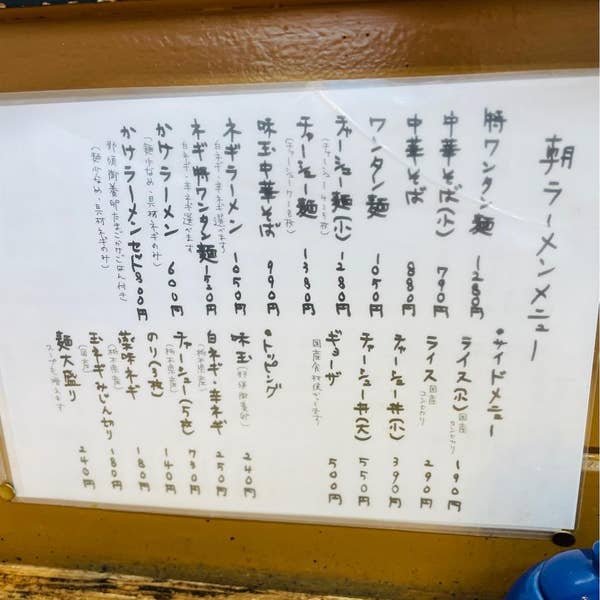 朝ラーメンメニュー
特ワンタン麺 1280円
中華そば(小) 790円
中華そば 880円
ワンタン麺 1050円
チャーシュー麺(小) 1280円
チャーシュー麺 1380円
味玉中華そば 990円
ネギラーメン 1050円
白ネギ・辛ネギ選べます
ネギ特ワンタン麺 1520円
白ネギ・辛ネギ選べます
かけラーメン 600円
(麺少なめ・具材ネギのみ)
かけラーメンセット 800円
那須御養卵たまごかけごはん付き
(麺少なめ・具材ネギのみ)
•サイドメニュー
ライス(小) 国産コシヒカリ 190円
ライス 国産コシヒカリ 290円
チャーシュー丼(小) 390円
チャーシュー丼(大) 550円
ギョーザ 500円
国産食材使ってます
•トッピング
味玉(那須御養卵) 240円
白ネギ・辛ネギ 250円
(栃木県産)
チャーシュー(5枚) 730円
(栃木県産)
のり(5枚) 140円
薬味ネギ 180円
(栃木県産)
玉ネギみじん切り 180円
(国産)
麺大盛り 240円
スープも増えます